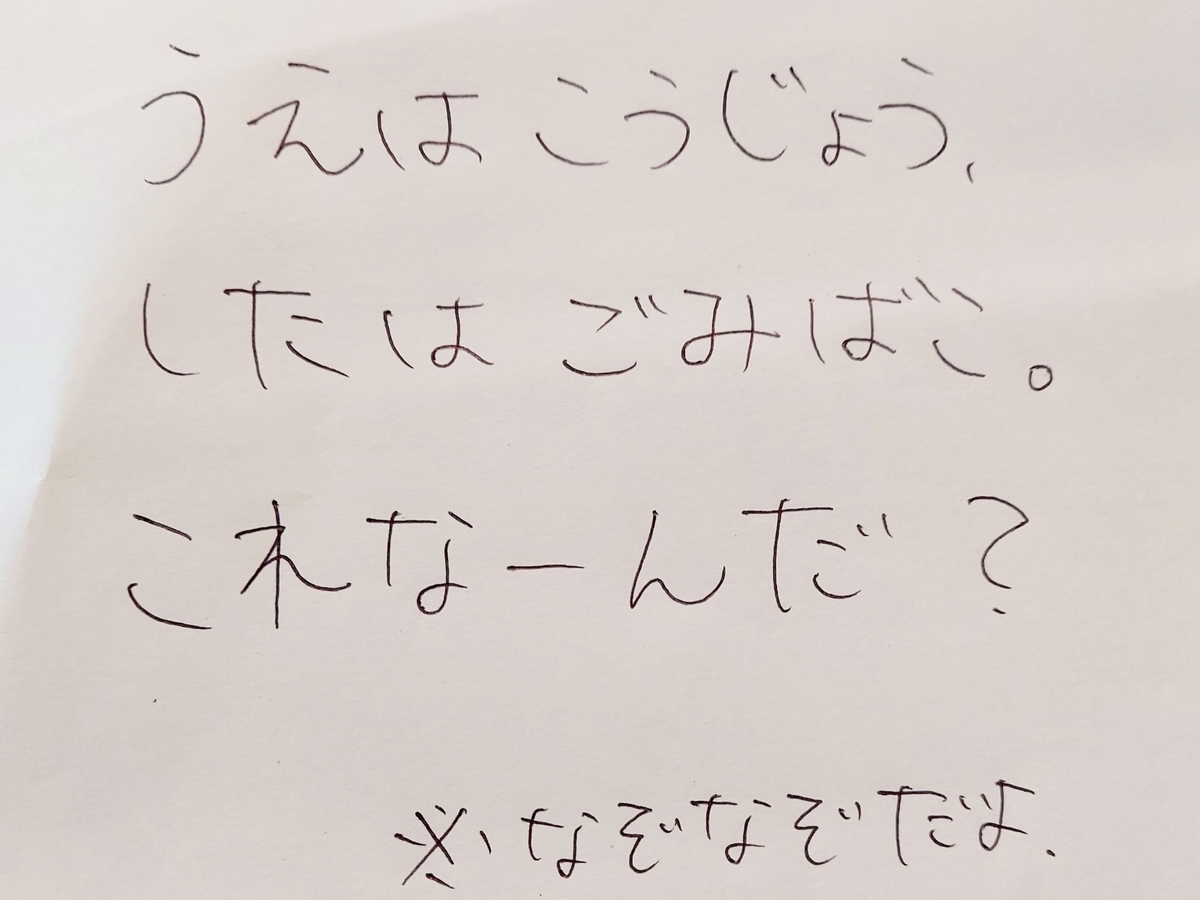 うえは こうじょう、
したは ごみばこ。
これなーんだ？
※、なぞなぞだよ.